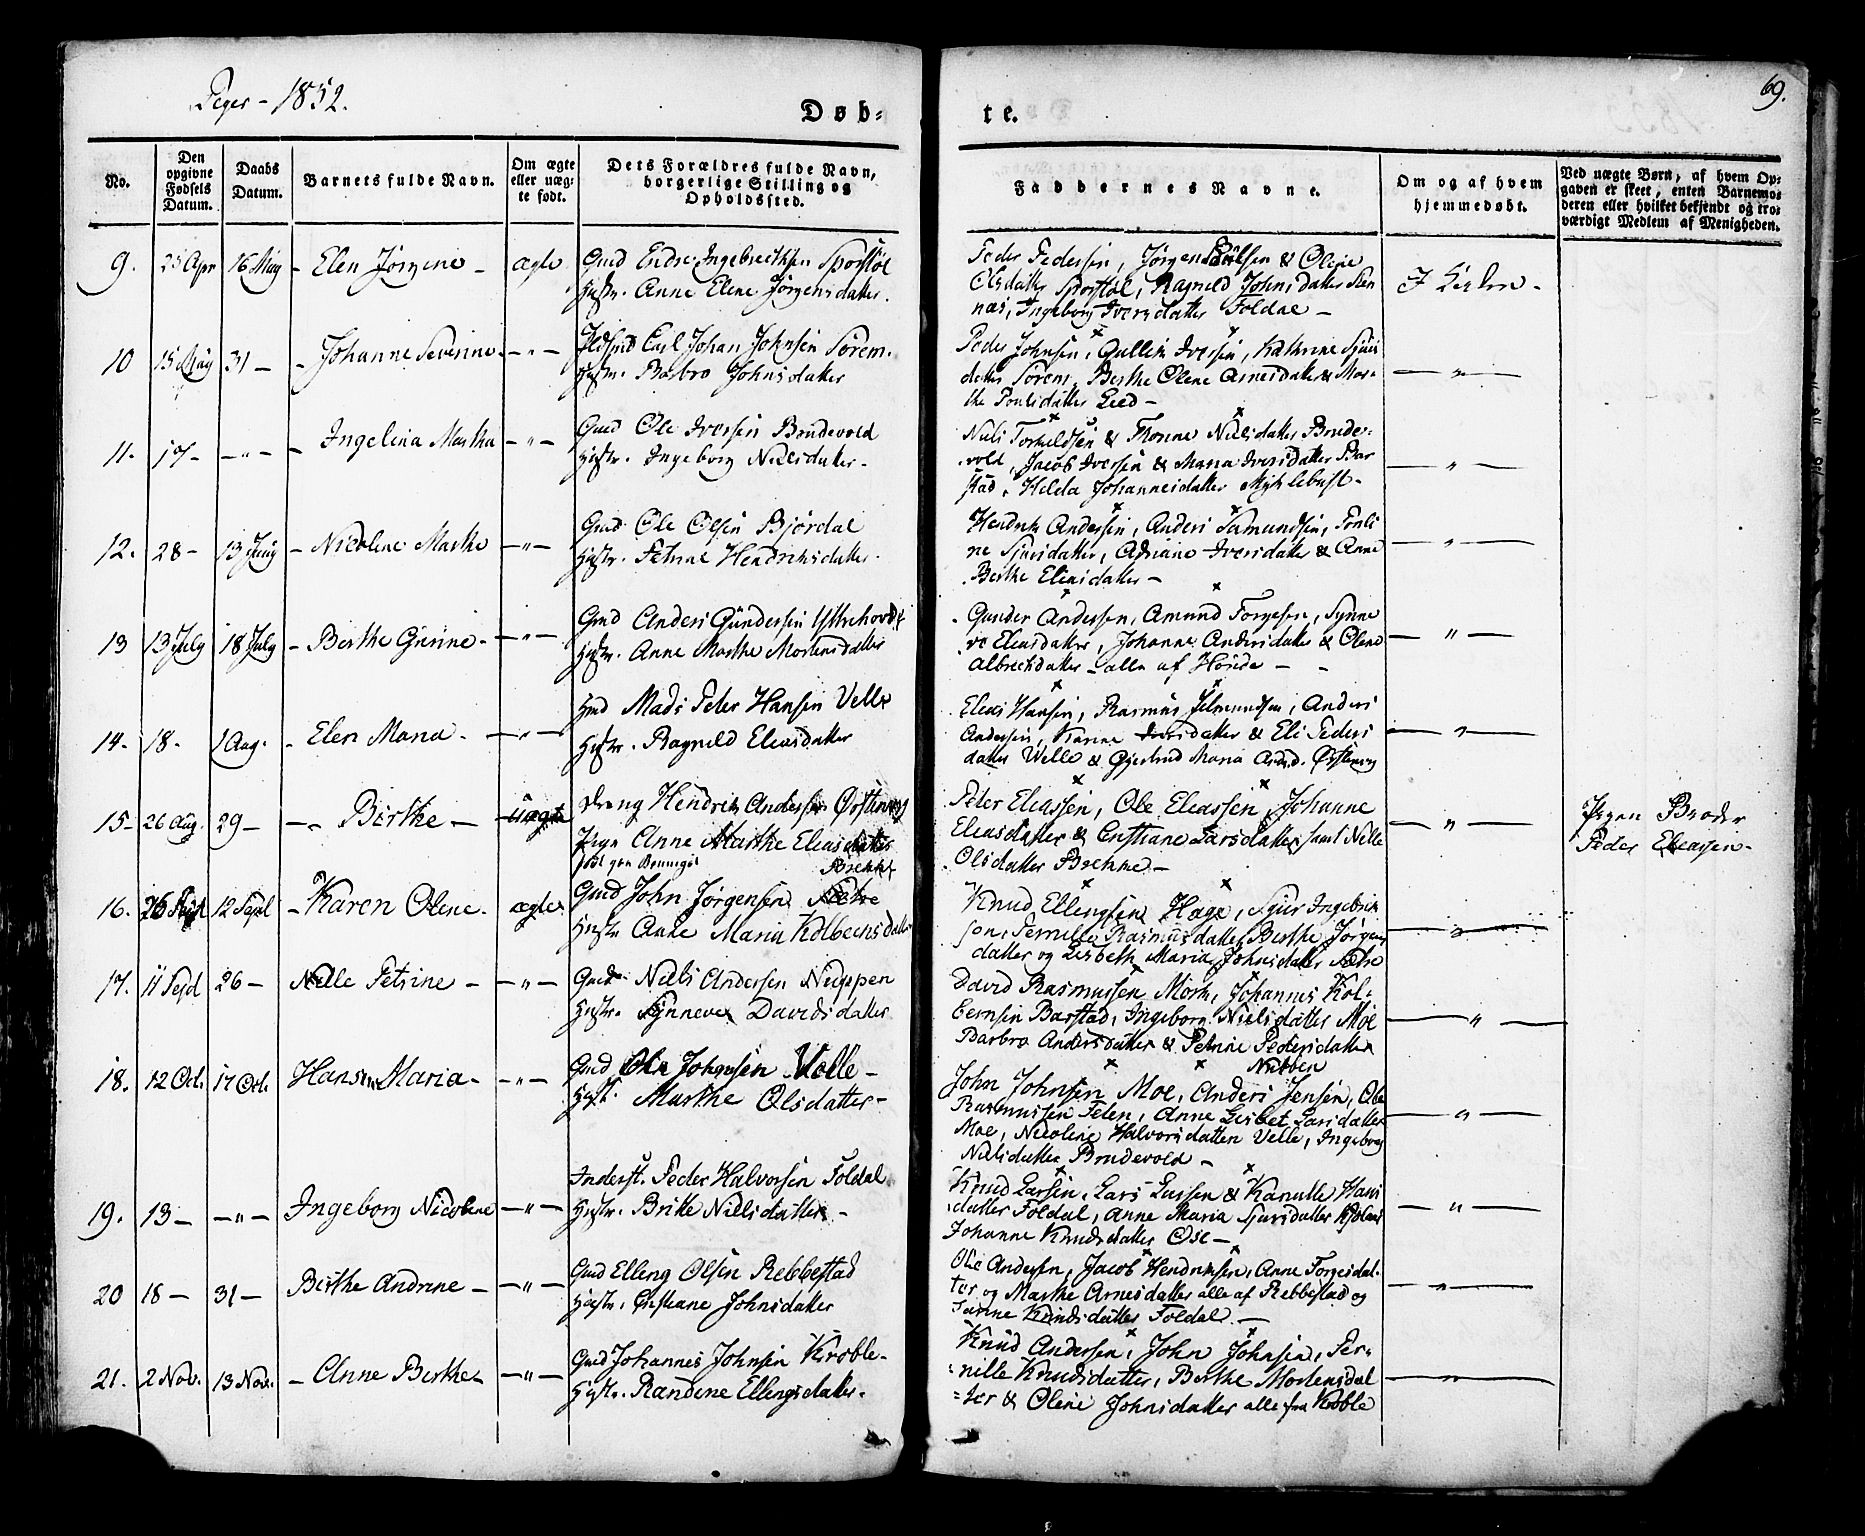 Piger - 1852.
69.
Døb-
te.
No.
Den opgivne Fødsels Datum.
Daabs Datum.
Barnets fulde Navn.
Om ægte eller uæg- te født.
Dets Forældres fulde Navn, borgerlige Stilling og Opholdssted.
Faddernes Navne.
Om og af hvem hjemmedøbt.
Ved uægte Børn, af hvem Op-
gaven er skeet, enten Barnemo-
deren eller hvilket bekjendt og tro-
værdigt Medlem af Menigheden.
9. 25 Apr 16 May - Elen Jørgine - ægte
Gmd Endre Ingebrethsen Sporstøl
Hustr. Anne Elene Jørgensdatter.
Peder Pedersen, Jørgen Poulsen & Oline
Olsdatter Sporstøl, Ragnild Johnsdatter
næs, Ingeborg Iversdatter Foldal -
I Kirken -
10 15 May 31 - - Johanne Severine - " -
Carl Johan Johnsen Sørem.
Hustr. Barbro Johnsdatter
Peder Johnsen, Gullik Iversen, Kathrine Sjurs
datter Sørem, Berthe Oline Arnesdatter & Mar-
the Poulsdatter Lied -
- " -
11. 17 - - " - - Ingelina Martha - " -
Gmd Ole Iversen Brudevold
Hustr. Ingeborg Nielsdatter -
Niels Torkeldsen & Thonne Nielsdatter Brude-
vold, Jacob Iversen & Maria Iversdatter Bar
stad, Helda Johannesdatter Myklebust -
- " -
12. 28 - 13 Juny - Nicoline Marthe - " -
Gmd Ole Olsen Bjørdal
Hustr. Petrine Hendriksdatter.
Hendrik Andersen, Anders Samundsen, Pouli
ne Sjursdatter, Adriane Iversdatter & Anne
Berthe Eliasdatter -
- " -
13 13 July 18 July - Berthe Gurine - - " -
Gmd Anders Gundersen Ytrehovde
Hustr. Anne Marthe Mortensdatter
Gunder Andersen, Amund Torgersen, Synne
ve Eliasdatter, Johanne Andersdatter & Olene
Albrechtsdatter - alle af Hovde - -
- " -
14. 18. 1 Aug. - Elen Maria - - " -
Mads Peter Hansen Velle
Hustr. Ragnild Eliasdatter
Elias Hansen, Rasmus Jetmundsen, Anders
Andersen, Hanne Iversdatter & Eli Peders
datter Welle & Gjertrud Maria Andrd. Ørstenvig
- " -
15 - 26 Aug. 29 - - Birthe - uægte
Dreng Hendrik Andersen Ørstenvig
Pige Anne Marthe Eliasdatter
Brekke
Peter Eliassen, Ole Eliassen, Johanne
Eliasdatter & Cristiane Larsdatter samt Nille
Olsdatter Brekke -
- " -
Pigen Broder
Peder Eliassen -
16. 26 12 Sept - Karen Olene. ægte
Gmd John Jørgensen Sætre
Hustr Anne Maria Kolbeensdatter
Knud Ellingsen Hage, Sjur Ingebrigt
son, Pernille Rasmusdatter, Berthe Jørgens
datter og Lisbeth Maria Johnsdatter Sætre
- " -
17. 11 Sept 26 - Nille Petrine - - " -
Gmd Niels Andersen Nuppen
Hustr. Synneve Davidsdatter
David Rasmussen Mork, Johannes Kol-
bernsen Barstad, Ingeborg Nielsdatter Moe
Barbro Andersdatter & Petrine Pedersdatter
Nubben
- " -
18. 12 Oct. 17 Oct. Hansine Maria - - " -
Gmd Ole Johnsen Velle -
Hust. Marthe Olsdatter -
John Johnsen Moe, Anders Jensen, Ole
Rasmussen Felen, Anne Lisbet Larsdatter
Moe, Nicoline Halvorsdatter Velle, Ingeborg
Nielsdatter Brudevold -
- " -
19. 13 - - " - Ingeborg Nicoline - " -
Inderst. Peder Halvorsen Foldal
Hustr. Britte Nielsdatter -
Knud Larsen, Lars Larsen & Kanutte Hans
datter Foldal, Anne Maria Sjursdatter Kjølaas
Johanne Knudsdatter Ose -
- " -
20 18 - 31 - Birthe Andrine - - " -
Gmd Elling Olsen Rebbestad
Hustr. Cristiane Johnsdatter
Ole Andersen, Jacob Hendriksen, Anne Torgesdat-
ter og Marthe Arnesdatter alle af Rebbestad og
Janne Knudsdatter Foldal. -
- " -
21. 2 Nov. 13 Nov. - Anne Berthe - - " -
Gmd Johannes Johnsen Krøble -
Hustr. Randine Ellingsdatter -
Knud Andersen, John Johnsen, Per-
nille Knudsdatter, Berthe Mortensdat
ter & Oline Johnsdatter alle fra Krøble
- " -